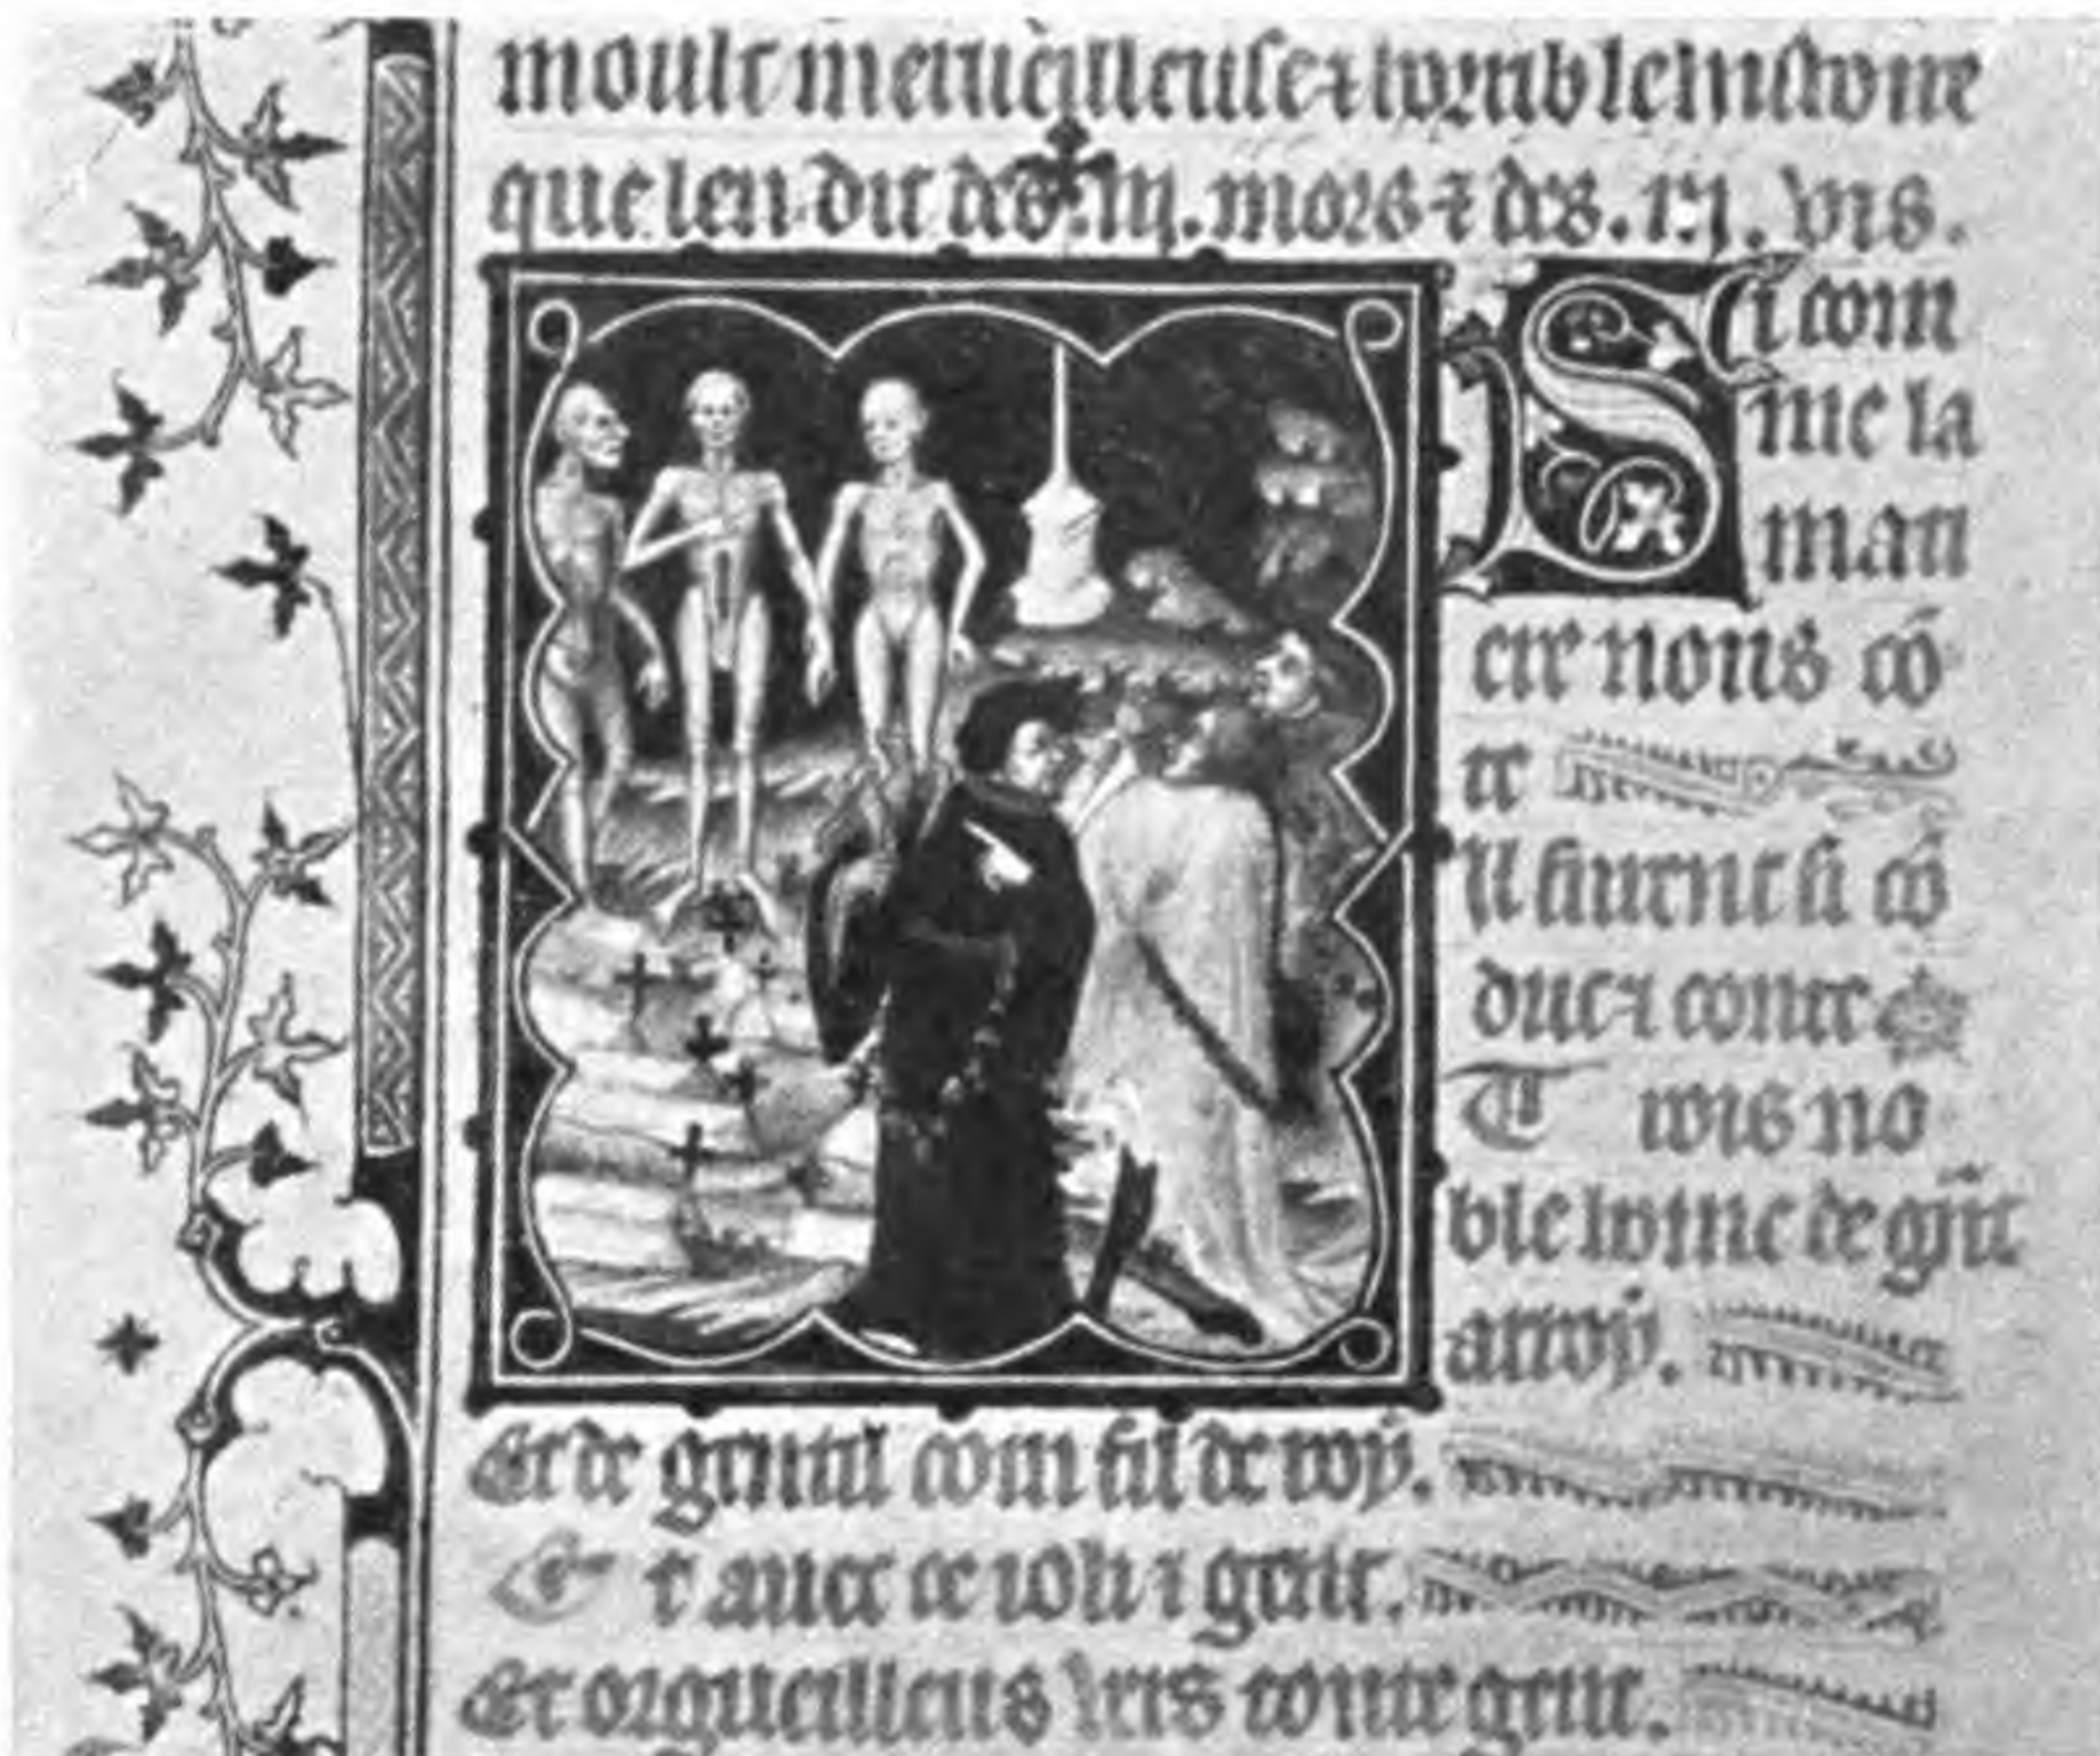 moult merueilleuse ⁊ horrible histoire
que len dit des .iii. mors ⁊ des .iii. vis.
Si com
me la
mati
ere nous cō
te
Il furent si cō
duc ⁊ conte
Trois no
ble homme de grāt
arroy.
Et de gentil com fil de roy.
Et auec ce ioli ⁊ gent.
Et orgueilleus vers toute gent.